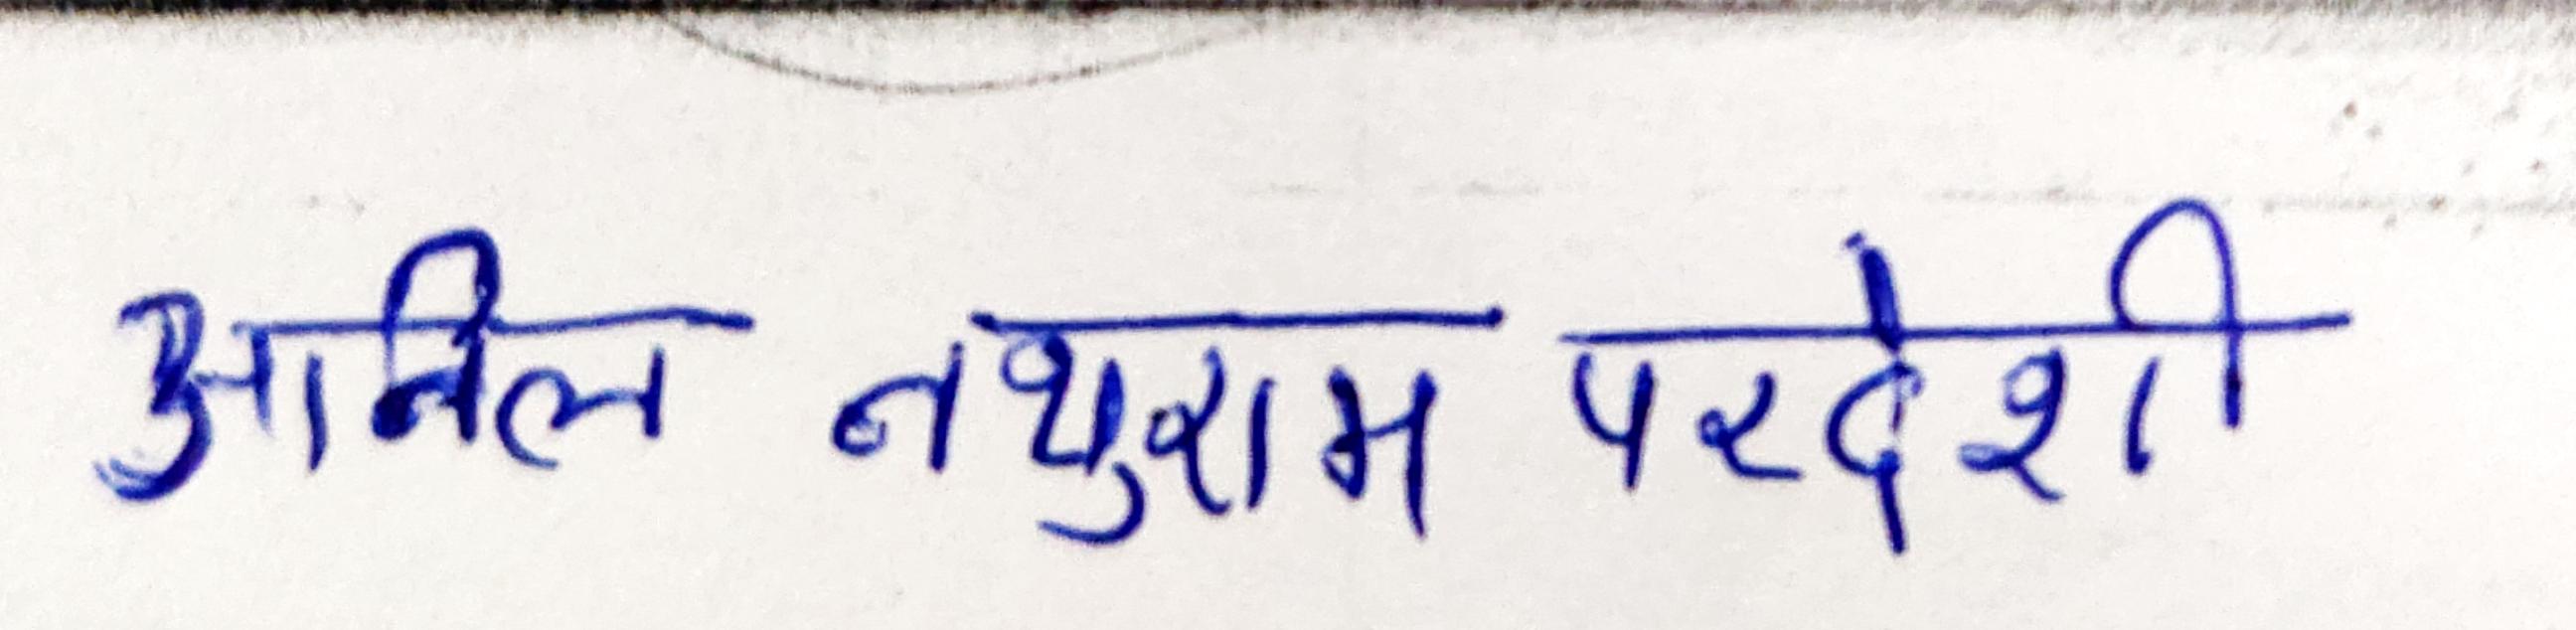 अनिल नथुराम परदेशी